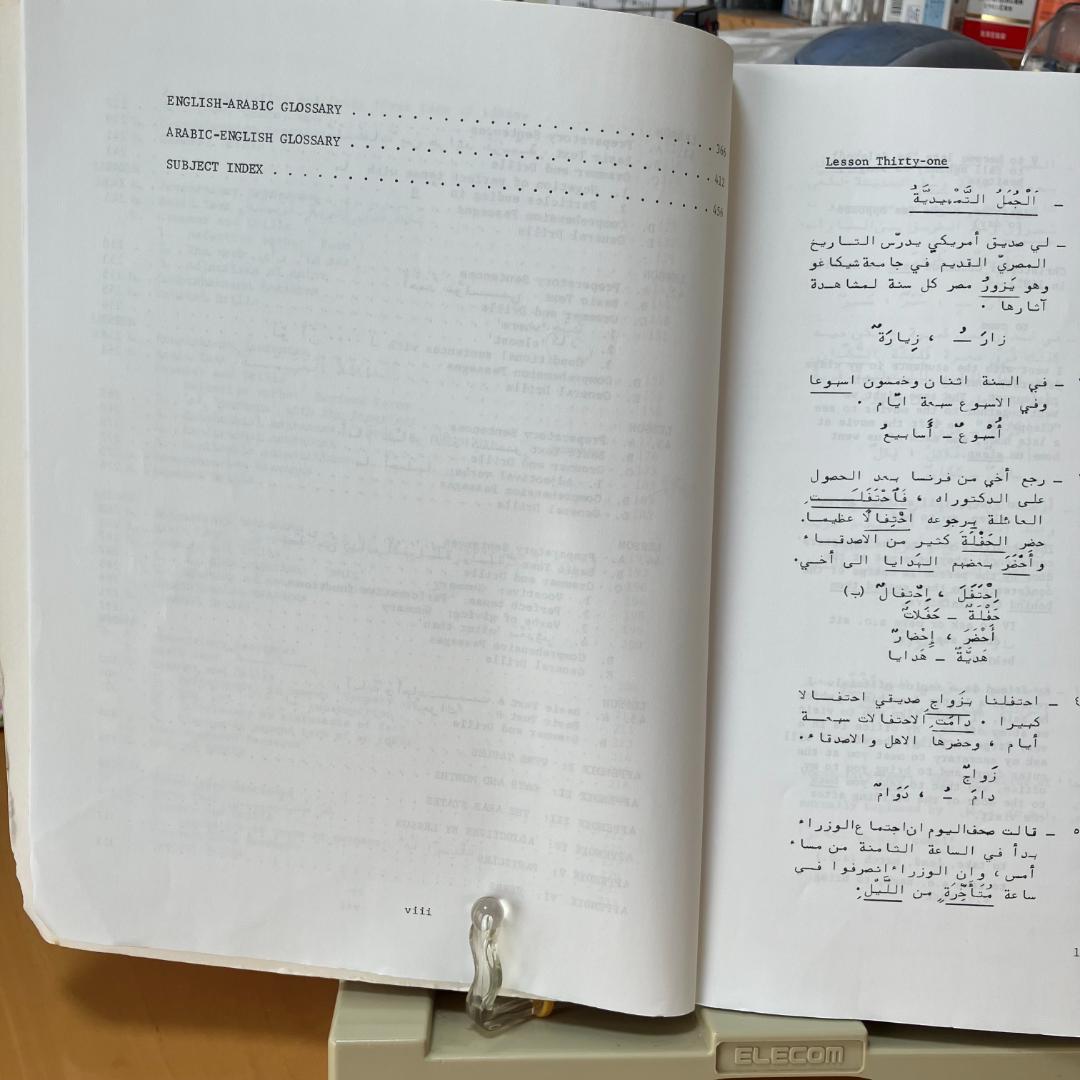 ENGLISH-ARABIC GLOSSARY . . . . . . . . . . . . . . . . . . . . . . . . 366
ARABIC-ENGLISH GLOSSARY . . . . . . . . . . . . . . . . . . . . . . . . 412
SUBJECT INDEX . . . . . . . . . . . . . . . . . . . . . . . . . . . . . 456
viii
Lesson Thirty-one
– اَلْجُمَلُ التَّمْهيديَّةُ
– لي صديق أمريكي يدرّس التاريخ
المصريّ القديم في جامعة شيكاغو
وهو يَزورُ مصر كل سنة لمشاهدة
آثارها .
زارَ ـُ ، زِيارَةٌ
– في السنة اثنان وخمسون اسبوعا
وفي الاسبوع سبعة ايّام .
أُسْبوعٌ – أَسابيعُ
– رجع أخي من فرنسا بعد الحصول
على الدكتوراه ، فَاَحْتَفَلَتِ
العائلة بِرجوعه احْتِفالًا عظيما.
حضر الحَفْلَةَ كثير من الاصدقاء
وأَحْضَرَ بعضهم الهَدايا الى أخي.
اِحْتَفَلَ ، اِحْتِفالٌ (ب)
حَفْلَةٌ – حَفَلاتٌ
أَحْضَرَ ، إِحْضارٌ
هَديَّةٌ – هَدايا
٤ – احتفلنا بزَواجِ صديقي احتفالا
كبيرا . دامَتِ الاحتفالات سبعة
أيام ، وحضرها الاهل والاصدقاء.
زَواجٌ
دامَ ـُ ، دَوَامٌ
٥ – قالت صحف اليوم ان اجتماع الوزراء
بدأ في الساعة الثامنة من مساء
أمس ، وان الوزراء انصرفوا في
ساعة مُتَأَخِّرَةٍ من اللَّيْلِ.
1
ELECOM